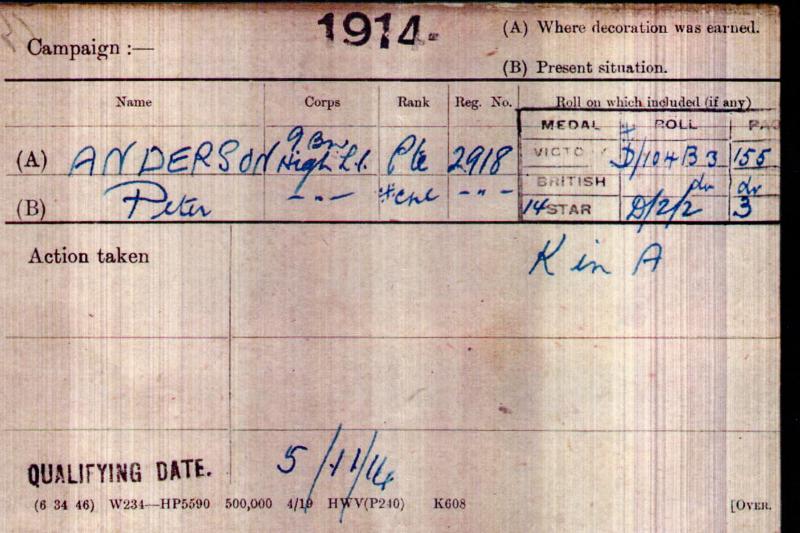 Campaign :— 1914- (A) Where decoration was earned.
(B) Present situation.
Name Corps Rank Reg. No. Roll on which included (if any)
MEDAL ROLL PAG
(A) ANDERSON 9 Bn. High L.I. Pte 2918 VICTO Y D/104 B 3 155
BRITISH do do
(B) Peter -"- #Cpl -"- 14 STAR D/2/2 3
Action taken K in A
QUALIFYING DATE. 5/11/14
(6 34 46) W234—HP5590 500,000 4/19 HWV(P240) K608 [OVER.